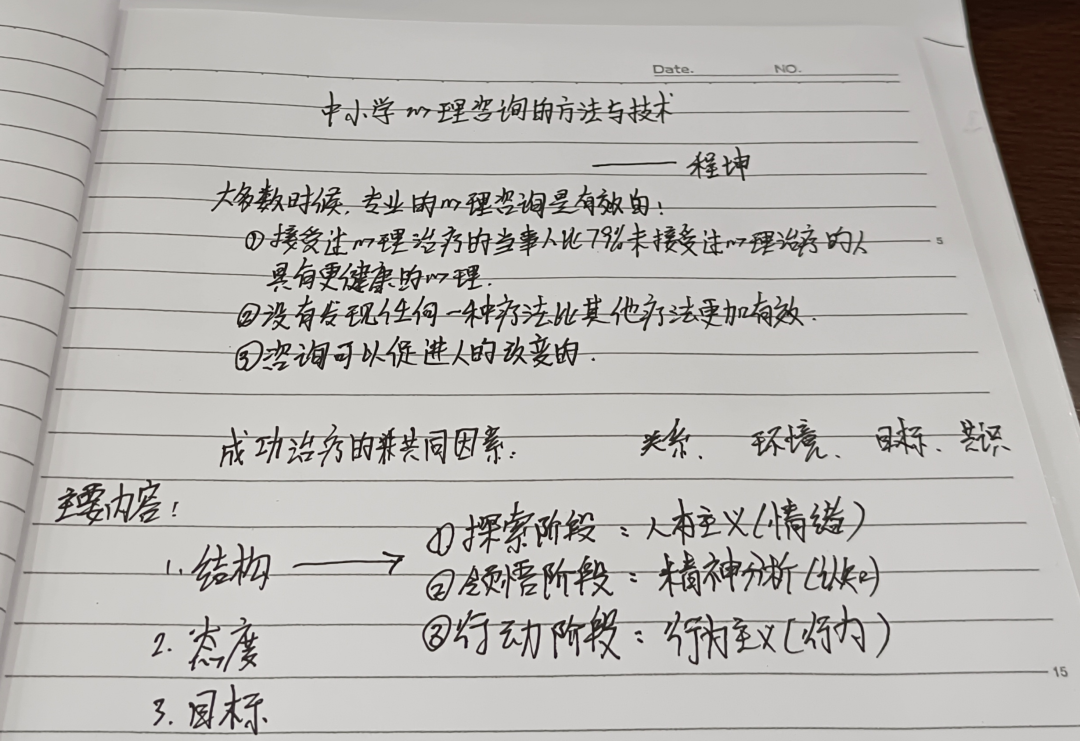 Date. NO.
中小学心理咨询的方法与技术
—— 程坤
大多数时候,专业的心理咨询是有效的!
①接受过心理治疗的当事人比79%未接受过心理治疗的人
5
具有更健康的心理.
②没有发现任何一种疗法比其他疗法更加有效.
③咨询可以促进人的改变的.
成功治疗的共同因素: 关系、 环境、 目标、共识
主要内容!
1. 结构 → ①探索阶段:人本主义(情绪)
②领悟阶段:精神分析(认知)
2. 态度 ③行动阶段:行为主义(行为)
15
3. 目标